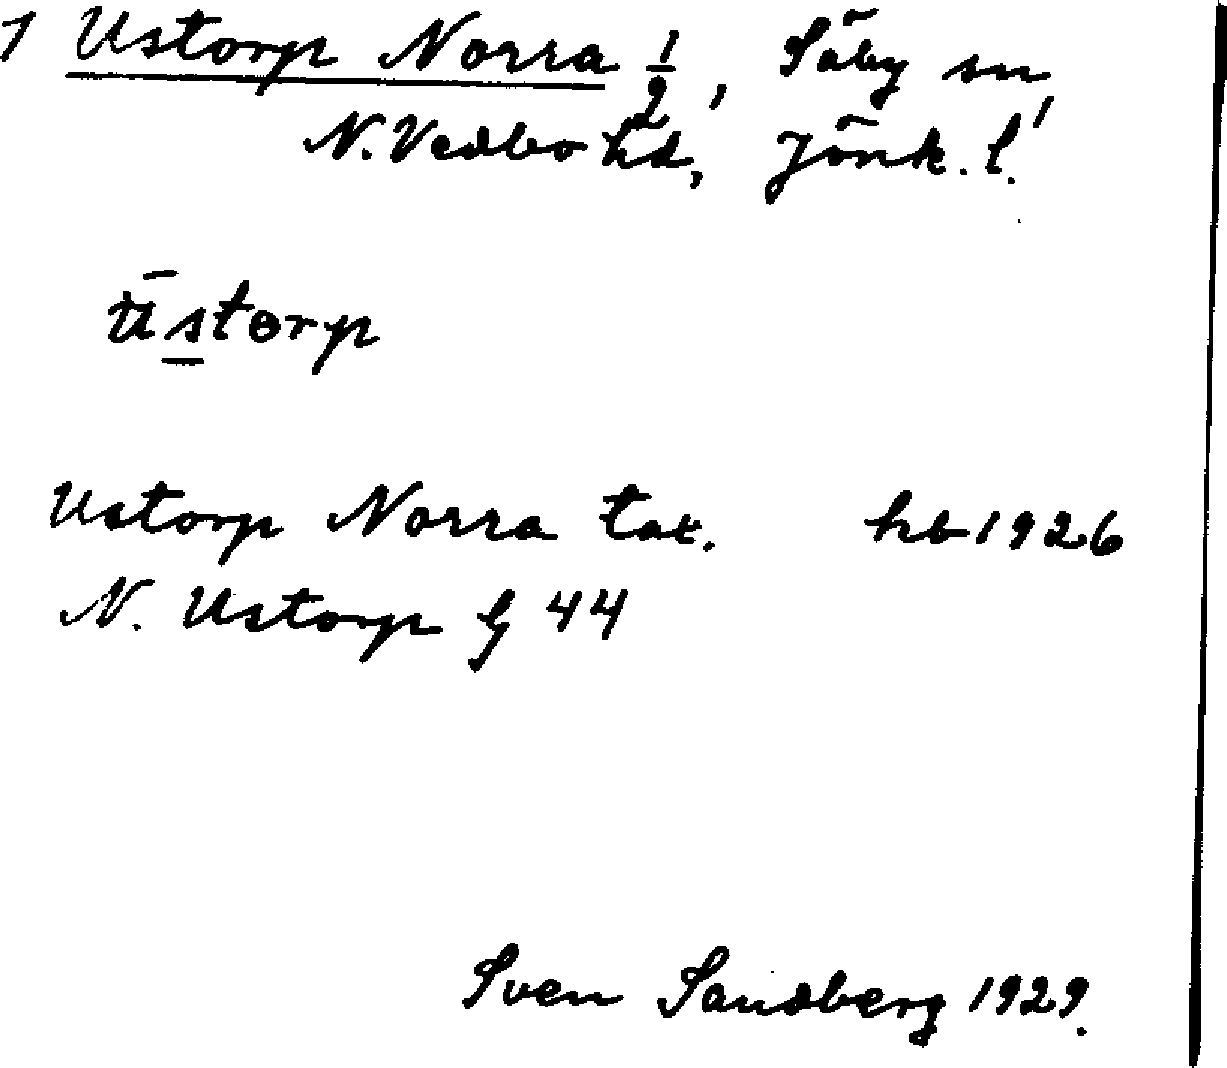 1 Ustorp Norra 1/2, Säby sn,
N. Vedbo hd, Jönk. l.
ūstɵrp
Ustorp Norra tat. hb 1926
N. Ustorp G 44
Sven Sandberg 1929.